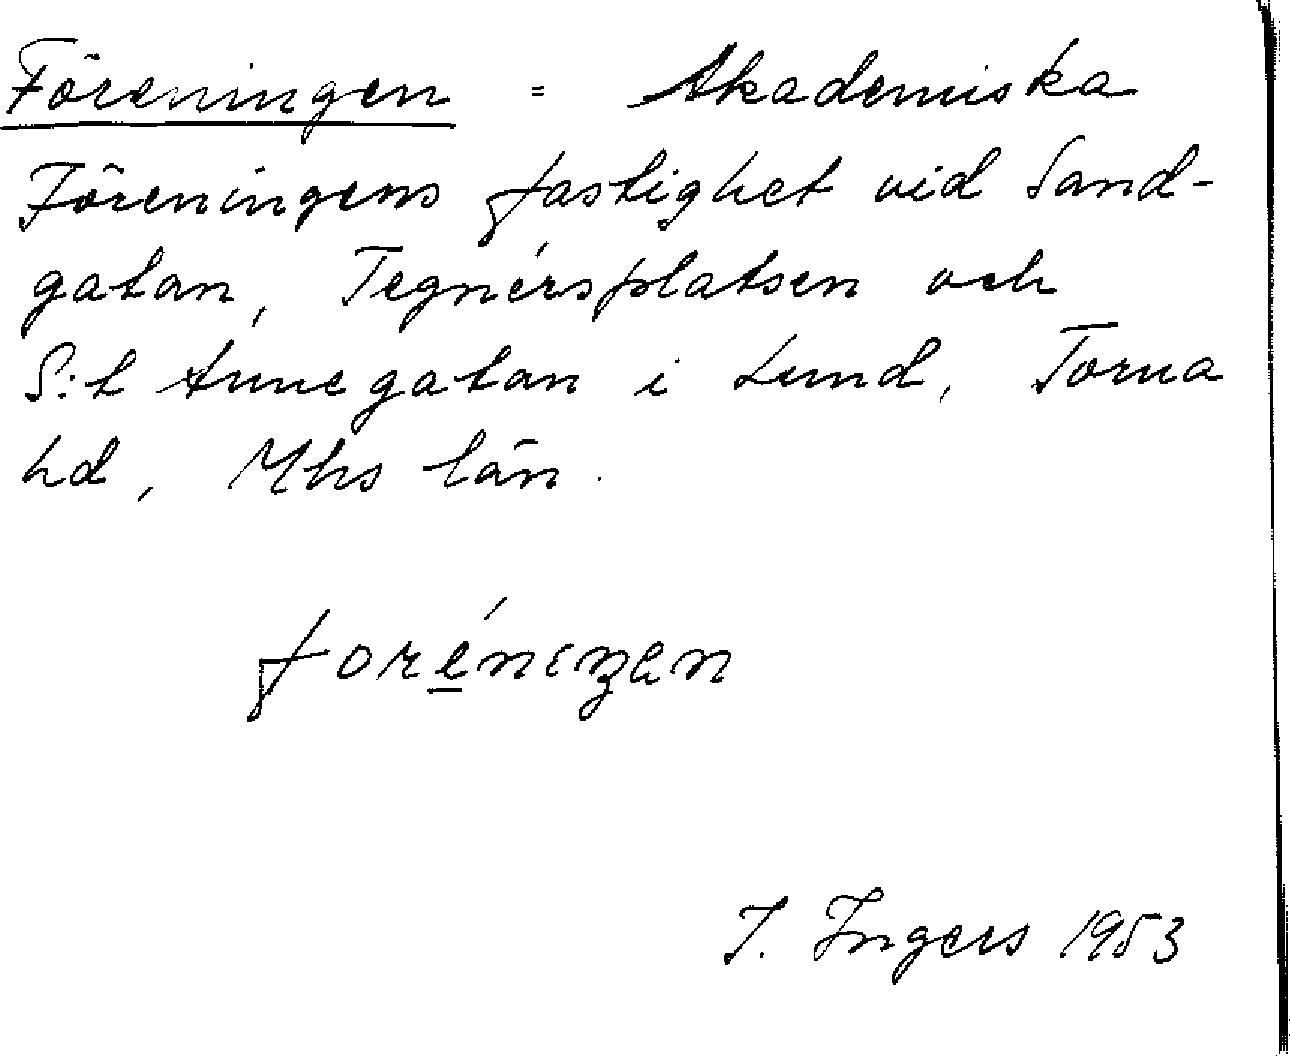 Föreningen = Akademiska
Föreningens fastighet vid Sand-
gatan, Tegnérsplatsen och
S:t Annegatan i Lund, Torna
hd, Mhs län.
I. Ingers 1953